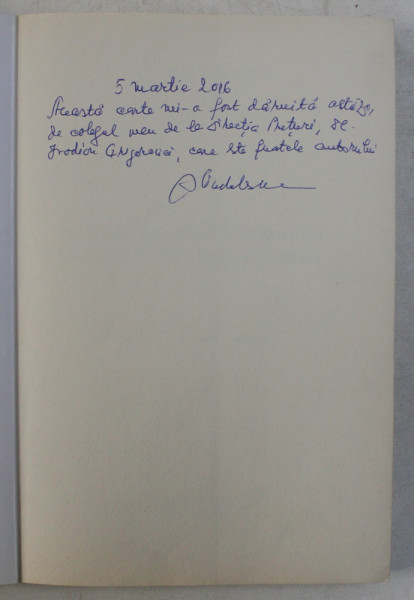 5 martie 2016
Această carte mi-a fost dăruită astăzi,
de colegul meu de la Direcția Prețuri, 
Irodion Grigoraci, care este fratele autorului